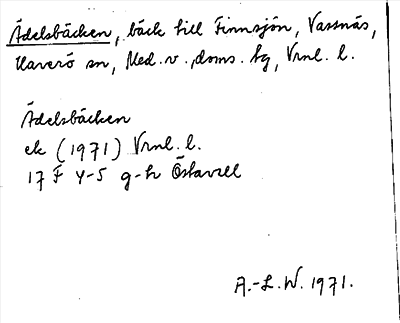 Ädelsbäcken, bäck till Finnsjön, Vassnäs,
Haverö sn, Med. v. doms. tg, Vrnl. l.
Ädelsbäcken
ek (1971) Vrnl. l.
17 F 4-5 g-h Östavall
A.-L.W. 1971.